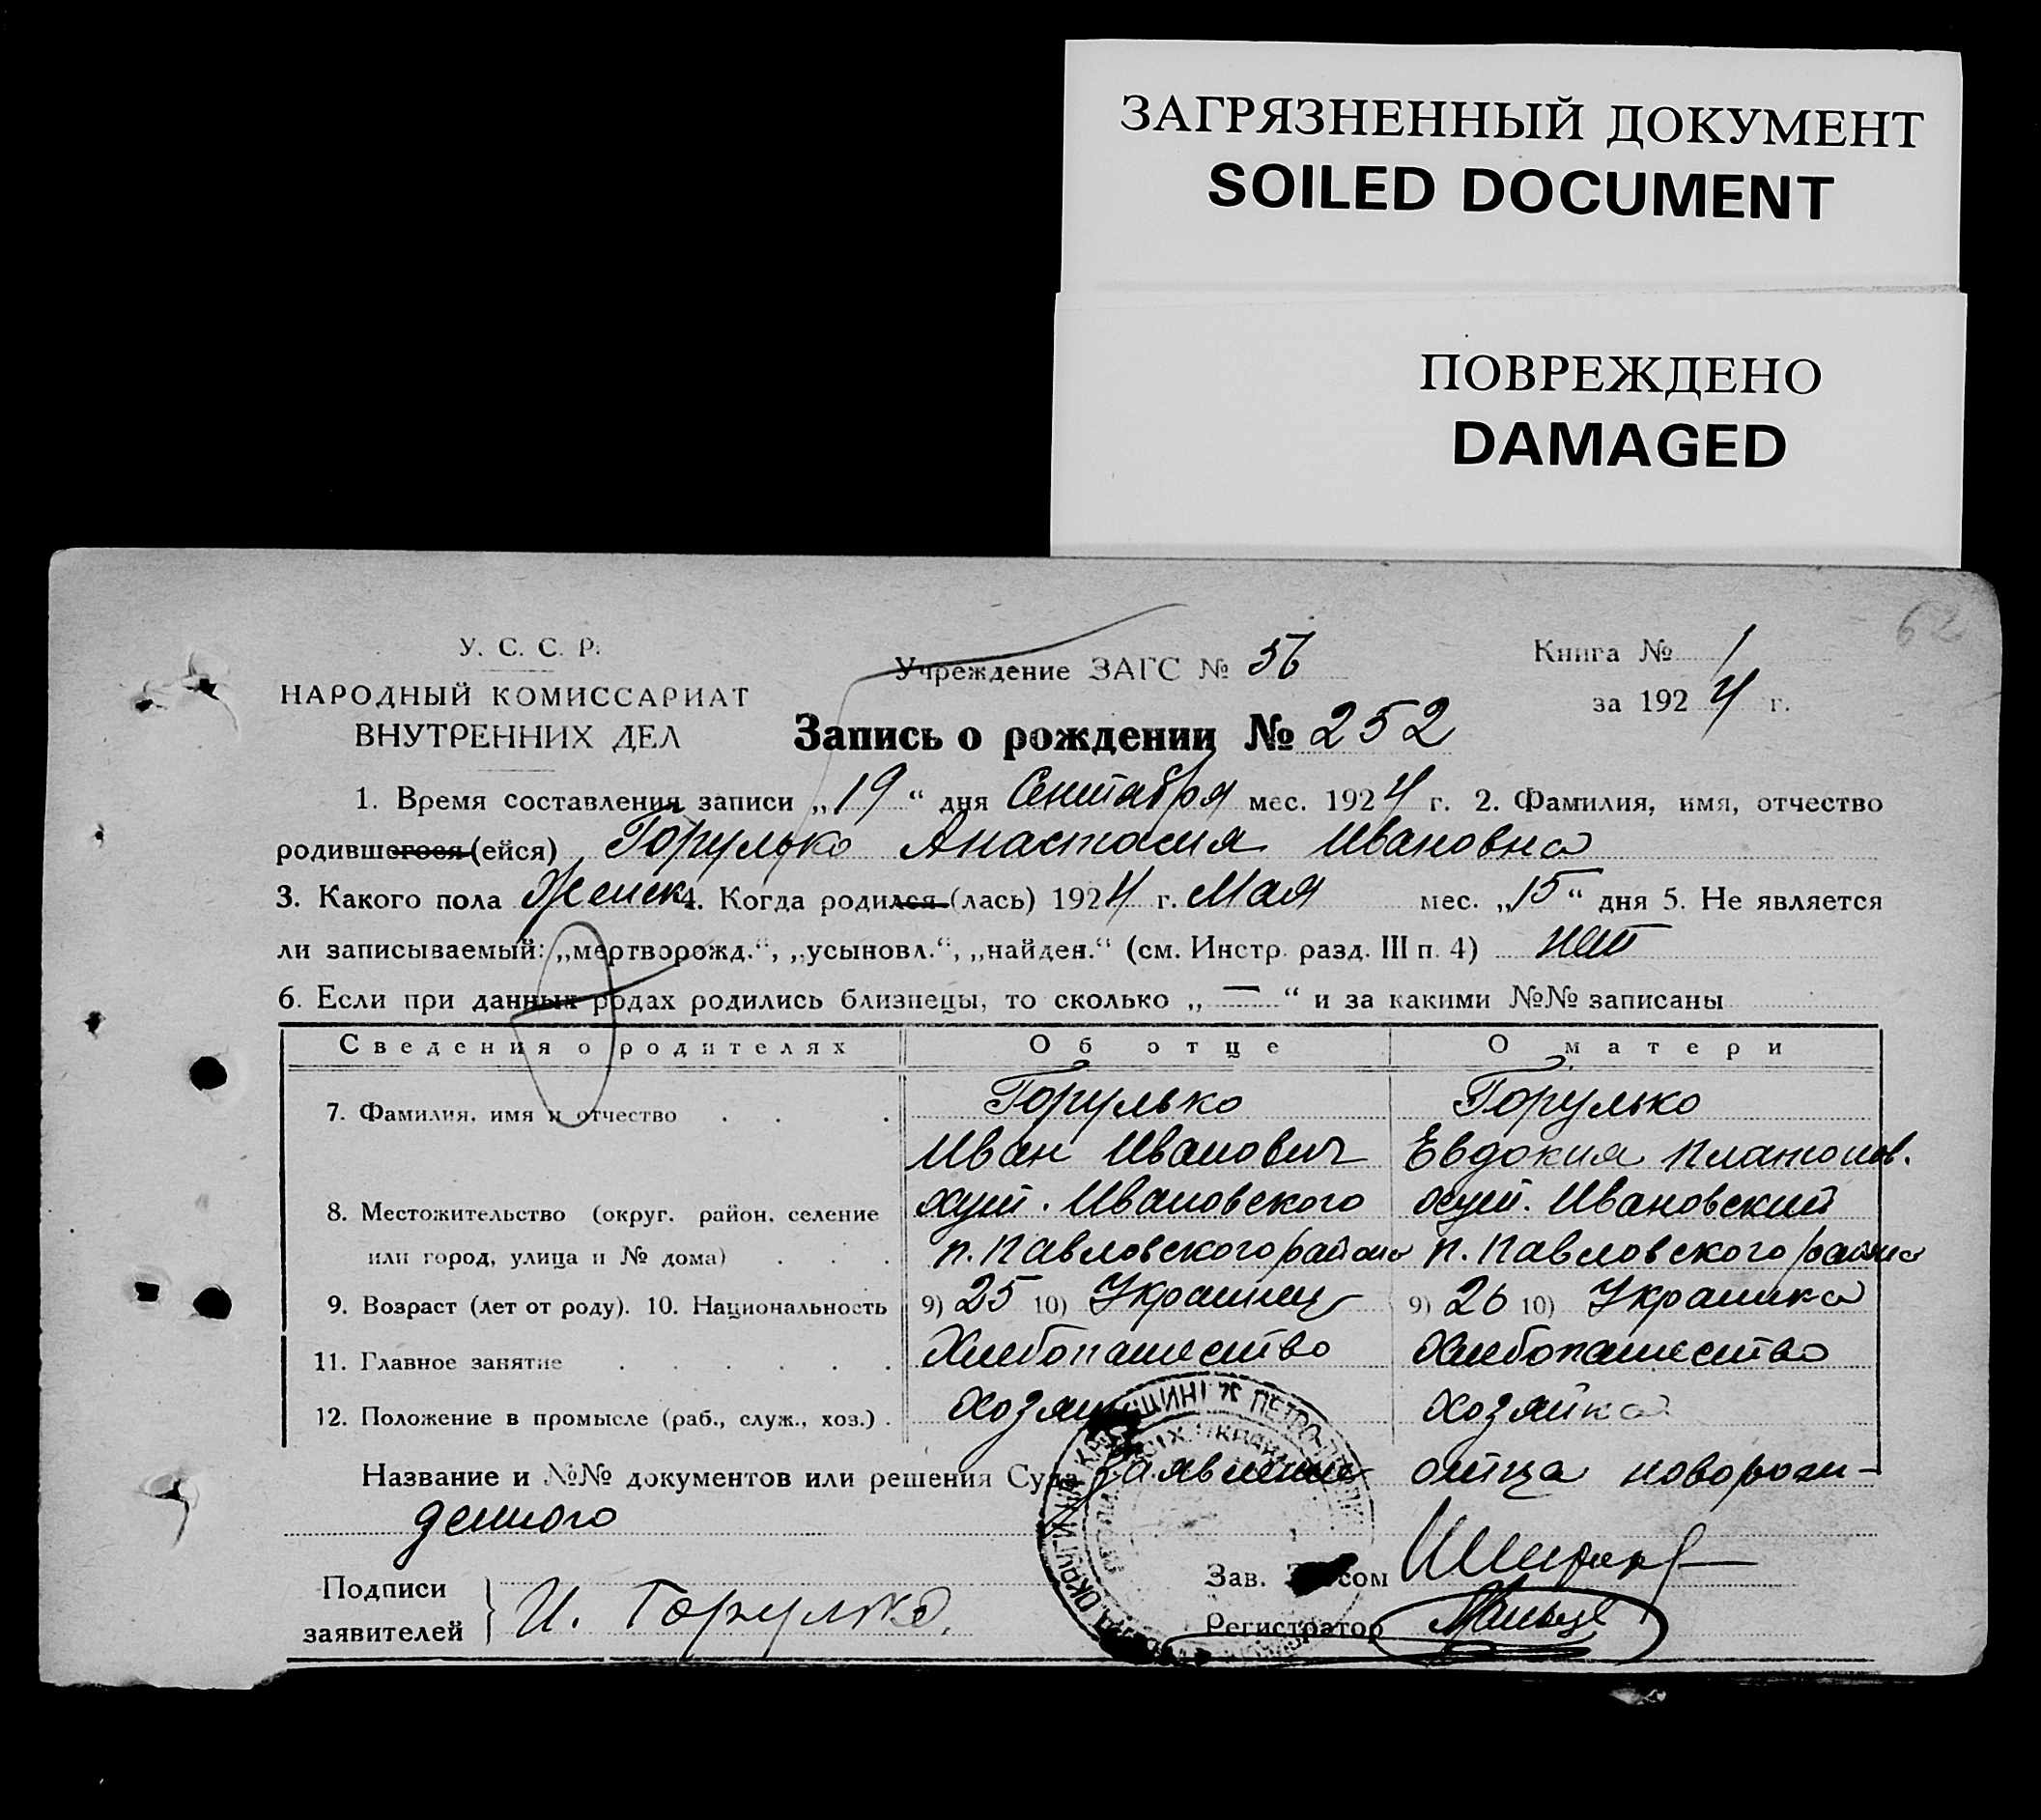 ЗАГРЯЗНЕННЫЙ ДОКУМЕНТ
SOILED DOCUMENT
ПОВРЕЖДЕНО
DAMAGED
62
У. С. С. Р.
НАРОДНЫЙ КОМИССАРИАТ
ВНУТРЕННИХ ДЕЛ
Учреждение ЗАГС № 56
Книга № 1
за 1924 г.
Запись о рождении № 252
1. Время составления записи „19“ дня Сентября мес. 1924 г. 2. Фамилия, имя, отчество
родившегося (ейся) Горулько Анастасия Ивановна
3. Какого пола Женск. 4. Когда родился (лась) 1924 г. Мая мес. „15“ дня 5. Не является
ли записываемый: „мертворожд.“, „усыновл.“, „найден.“ (см. Инстр. разд. III п. 4) нет
6. Если при данных родах родились близнецы, то сколько „—“ и за какими №№ записаны
Сведения о родителях Об отце О матери
7. Фамилия, имя и отчество Горулько Горулько
Иван Иванович Евдокия Платонов.
8. Местожительство (округ, район, селение хут. Ивановского хут. Ивановский
или город, улица и № дома) п. Павловского района п. Павловского района
9. Возраст (лет от роду). 10. Национальность 9) 25 10) Украинец 9) 26 10) Украинка
11. Главное занятие Хлебопашество Хлебопашество
12. Положение в промысле (раб., служ., хоз.) хозяин хозяйка
Название и №№ документов или решения Суда Заявление отца новорож-
денного
Зав. Загсом
Подписи
заявителей И. Горулько.
Регистратор